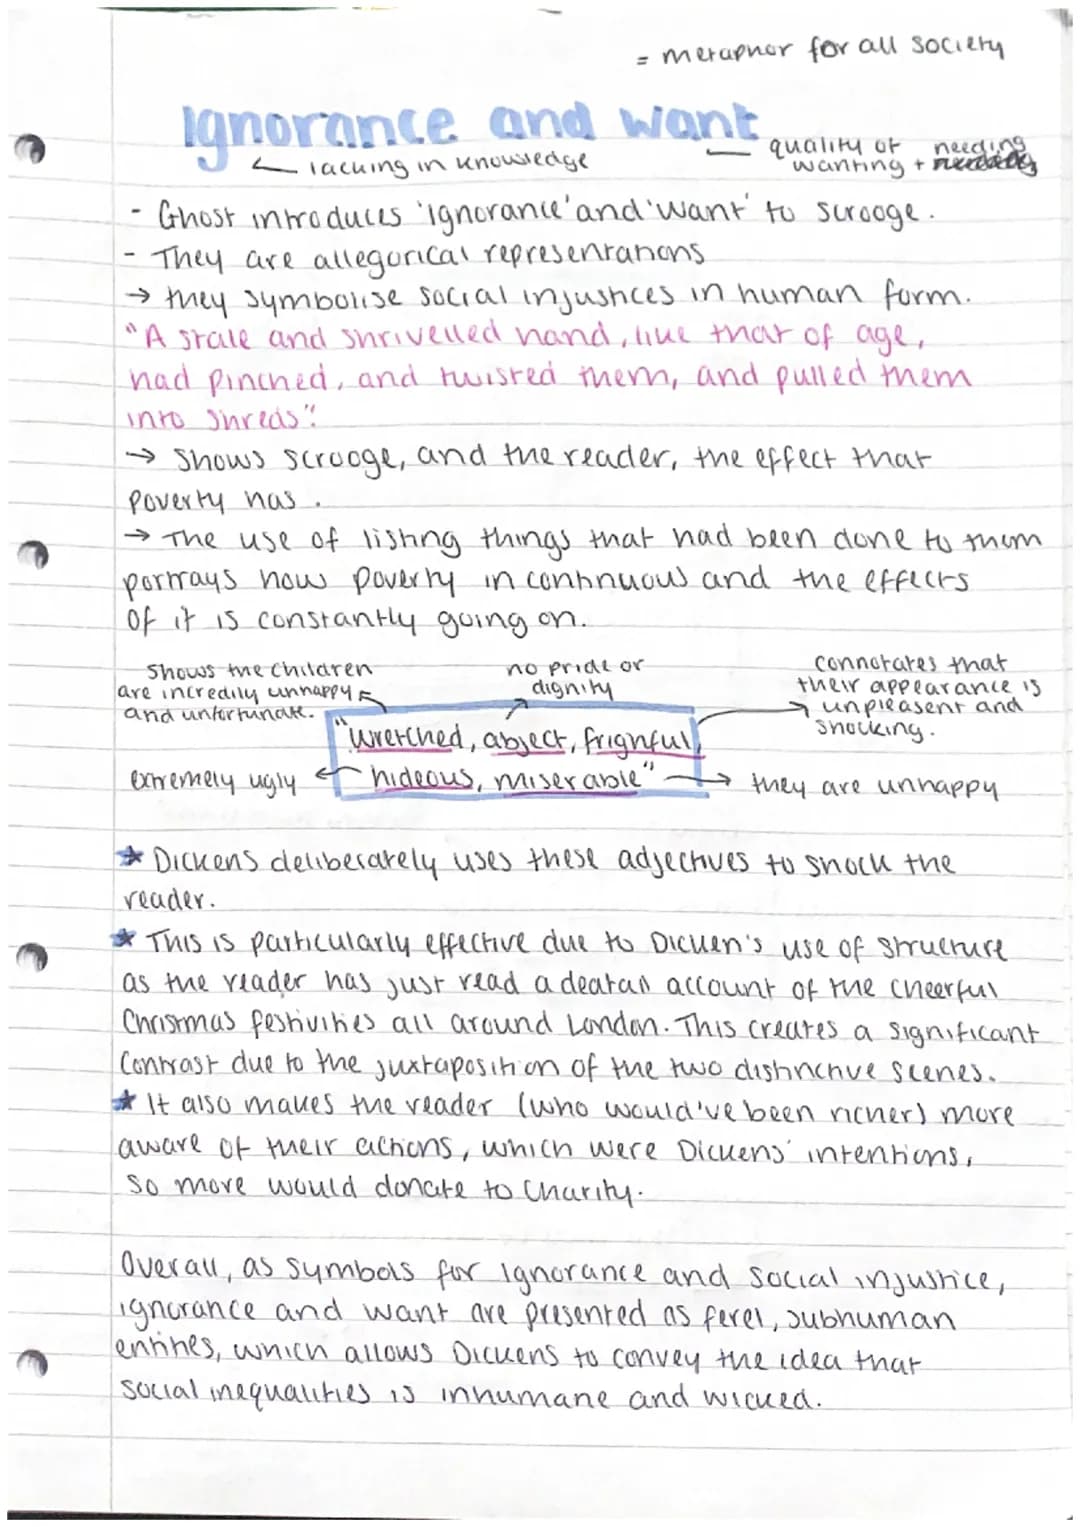 = metaphor for all society
Ignorance and want
← lacking in knowledge
quality of needing
wanting +
- Ghost introduces 'ignorance' and 'want' to scrooge.
- They are allegorical representations
→ they symbolise social injustices in human form.
"A stale and shrivelled hand, like that of age,
had pinched, and twisted them, and pulled them
into shreds".
→ Shows scrooge, and the reader, the effect that
poverty has.
→ The use of listing things that had been done to them
portrays how poverty in continuous and the effects
of it is constantly going on.
Shows the children
are incredily unhappy
and unfortunate.
no pride or
dignity
connotates that
their appearance is
unpleasent and
shocking.
"Wretched, abject, frighful,
hideous, miserable"
extremely ugly
they are unhappy
★ Dickens deliberately uses these adjectives to shock the
reader.
★ This is particularly effective due to Dicken's use of structure
as the reader has just read a deatail account of the cheerful
Christmas festivities all around London. This creates a significant
contrast due to the juxtaposition of the two distinctive scenes.
★ It also makes the reader (who would've been richer) more
aware of their actions, which were Dickens' intentions,
so more would donate to charity.
Overall, as symbols for ignorance and social injustice,
ignorance and want are presented as ferel, subhuman
entities, which allows Dickens to convey the idea that
social inequalities is inhumane and wicked.